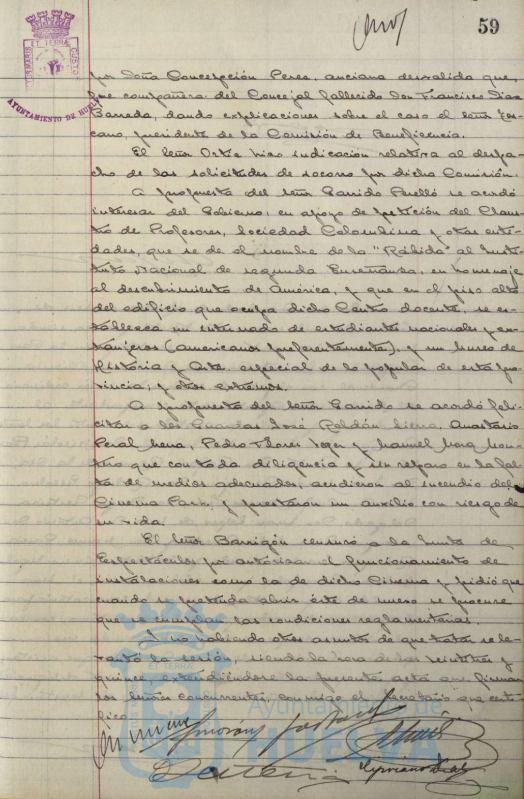 59
AYUNTAMIENTO DE HUELVA
por Doña Concepción Perea, anciana desvalida que
fue compañera del Concejal fallecido Don Francisco Díaz
Barreda, dando explicaciones sobre el caso el Señor
cano, presidente de la Comisión de Beneficencia.
El Señor Ortiz hizo indicación relativa al despa-
cho de las solicitudes de socorro por dicha Comisión.
A propuesta del Señor Garrido Perelló se acordó
interesar del Gobierno, en apoyo de petición del Claus-
tro de Profesores, Sociedad Colombina y otras enti-
dades, que se dé el nombre de la "Rábida" al Insti-
tuto Nacional de segunda Enseñanza, en homenaje
al descubrimiento de América, y que en el piso alto
del edificio que ocupa dicho Centro docente, se es-
tablezca un internado de estudiantes nacionales y ex-
tranjeros (americanos preferentemente), y un museo de
Historia y Arte, especial de lo popular de esta pro-
vincia, y otros extremos.
A propuesta del Señor Garrido se acordó feli-
citar a los Guardas José Roldán Sierra, Anastasio
Peral Mena, Pedro Flores y Manuel Mora Mon-
que con toda diligencia y sin reparo en la fal-
ta de medios adecuados, acudieron al incendio del
Cinema Park, y prestaron un auxilio con riesgo de
su vida.
El Señor Barrigón censuró a la Junta de
Espectáculos por autorizar el funcionamiento de
instalaciones como la de dicho Cinema y pidió que
cuando se pretenda abrir éste de nuevo se procure
que se cumplan las condiciones reglamentarias.
Y no habiendo otros asuntos de que tratar se le-
vantó la sesión, siendo la hora de las veintitres y
quince, extendiéndose la presente acta que firman
los Señores concurrentes, conmigo el Secretario que certi-
fico.
Ayuntamiento de
HUELVA